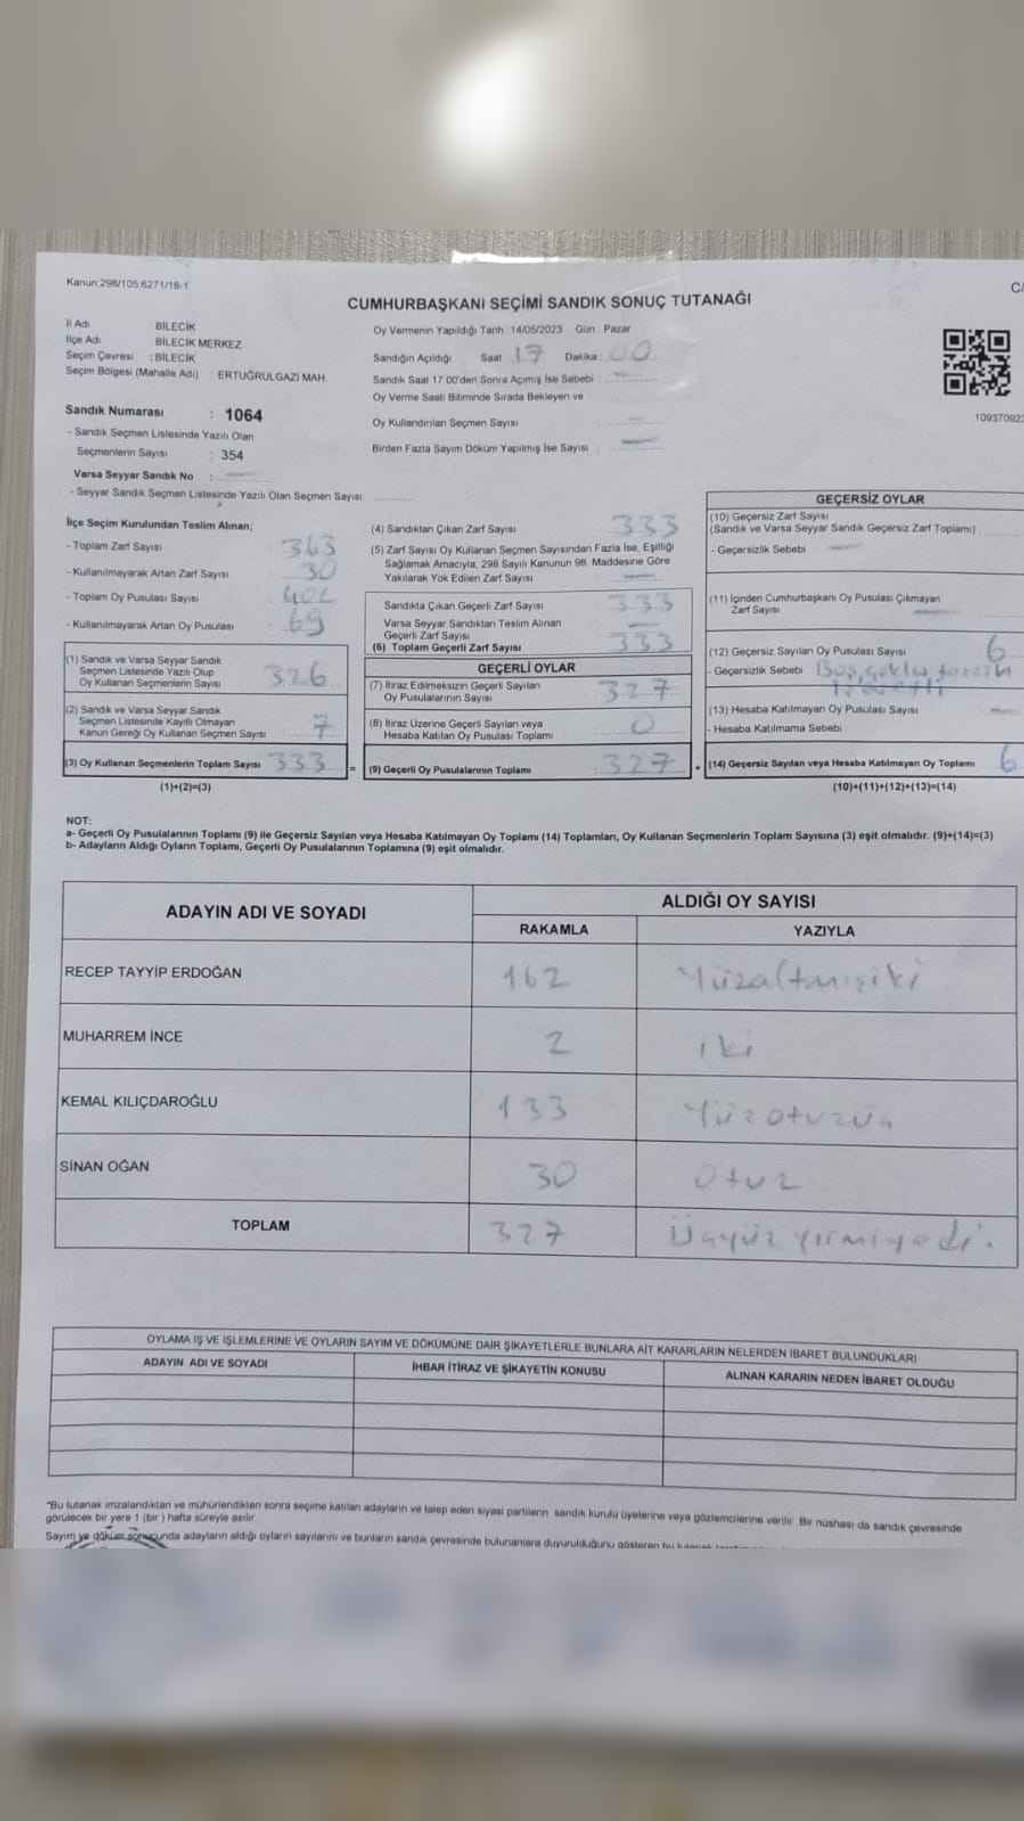 Kanun:298/105;6271/18-1
CUMHURBAŞKANI SEÇİMİ SANDIK SONUÇ TUTANAĞI
İl Adı BİLECİK
İlçe Adı BİLECİK MERKEZ
Seçim Çevresi : BİLECİK
Seçim Bölgesi (Mahalle Adı) : ERTUĞRULGAZİ MAH.
Sandık Numarası : 1064
- Sandık Seçmen Listesinde Yazılı Olan
Seçmenlerin Sayısı : 354
Varsa Seyyar Sandık No :
- Seyyar Sandık Seçmen Listesinde Yazılı Olan Seçmen Sayısı:
Oy Vermenin Yapıldığı Tarih: 14/05/2023 Gün: Pazar
Sandığın Açıldığı Saat 17 Dakika: 00
Sandık Saat 17:00'den Sonra Açımış İse Sebebi :
Oy Verme Saati Bitiminde Sırada Bekleyen ve
Oy Kullandırılan Seçmen Sayısı
Birden Fazla Sayım Döküm Yapılmış İse Sayısı
10937092
İlçe Seçim Kurulundan Teslim Alınan;
- Toplam Zarf Sayısı 363
- Kullanılmayarak Artan Zarf Sayısı 30
- Toplam Oy Pusulası Sayısı 402
- Kullanılmayarak Artan Oy Pusulası 69
(1) Sandık ve Varsa Seyyar Sandık
Seçmen Listesinde Yazılı Olup
Oy Kullanan Seçmenlerin Sayısı 326
(2) Sandık ve Varsa Seyyar Sandık
Seçmen Listesinde Kayıtlı Olmayan
Kanun Gereği Oy Kullanan Seçmen Sayısı 7
(3) Oy Kullanan Seçmenlerin Toplam Sayısı 333
(1)+(2)=(3)
(4) Sandıktan Çıkan Zarf Sayısı 333
(5) Zarf Sayısı Oy Kullanan Seçmen Sayısından Fazla İse, Eşitliği
Sağlamak Amacıyla, 298 Sayılı Kanunun 98. Maddesine Göre
Yakılarak Yok Edilen Zarf Sayısı
Sandıkta Çıkan Geçerli Zarf Sayısı 333
Varsa Seyyar Sandıktan Teslim Alınan
Geçerli Zarf Sayısı
(6) Toplam Geçerli Zarf Sayısı 333
GEÇERLİ OYLAR
(7) İtiraz Edilmeksizin Geçerli Sayılan
Oy Pusulalarının Sayısı 327
(8) İtiraz Üzerine Geçerli Sayılan veya
Hesaba Katılan Oy Pusulası Toplamı 0
= (9) Geçerli Oy Pusulalarının Toplamı 327
GEÇERSİZ OYLAR
(10) Geçersiz Zarf Sayısı
(Sandık ve Varsa Seyyar Sandık Geçersiz Zarf Toplamı)
- Geçersizlik Sebebi
(11) İçinden Cumhurbaşkanı Oy Pusulası Çıkmayan
Zarf Sayısı
(12) Geçersiz Sayılan Oy Pusulası Sayısı 6
- Geçersizlik Sebebi Boş, çoklu tercih
(13) Hesaba Katılmayan Oy Pusulası Sayısı
- Hesaba Katılmama Sebebi
(14) Geçersiz Sayılan veya Hesaba Katılmayan Oy Toplamı 6
(10)+(11)+(12)+(13)=(14)
NOT:
a- Geçerli Oy Pusulalarının Toplamı (9) ile Geçersiz Sayılan veya Hesaba Katılmayan Oy Toplamı (14) Toplamları, Oy Kullanan Seçmenlerin Toplam Sayısına (3) eşit olmalıdır. (9)+(14)=(3)
b- Adayların Aldığı Oyların Toplamı, Geçerli Oy Pusulalarının Toplamına (9) eşit olmalıdır.
ADAYIN ADI VE SOYADI ALDIĞI OY SAYISI
RAKAMLA YAZIYLA
RECEP TAYYİP ERDOĞAN 162 Yüzaltmışiki
MUHARREM İNCE 2 iki
KEMAL KILIÇDAROĞLU 133 Yüzotuzüç
SİNAN OĞAN 30 Otuz
TOPLAM 327 Üçyüz yirmiyedi.
OYLAMA İŞ VE İŞLEMLERİNE VE OYLARIN SAYIM VE DÖKÜMÜNE DAİR ŞİKAYETLERLE BUNLARA AİT KARARLARIN NELERDEN İBARET BULUNDUKLARI
ADAYIN ADI VE SOYADI İHBAR İTİRAZ VE ŞİKAYETİN KONUSU ALINAN KARARIN NEDEN İBARET OLDUĞU
"Bu tutanak imzalandıktan ve mühürlendikten sonra seçime katılan adayların ve talep eden siyasi partilerin sandık kurulu üyelerine veya gözlemcilerine verilir. Bir nüshası da sandık çevresinde
görülecek bir yere 1 (bir ) hafta süreyle asılır.
Sayım ve döküm sonucunda adayların aldığı oyların sayılarını ve bunların sandık çevresinde bulunanlara duyurulduğunu gösteren bu